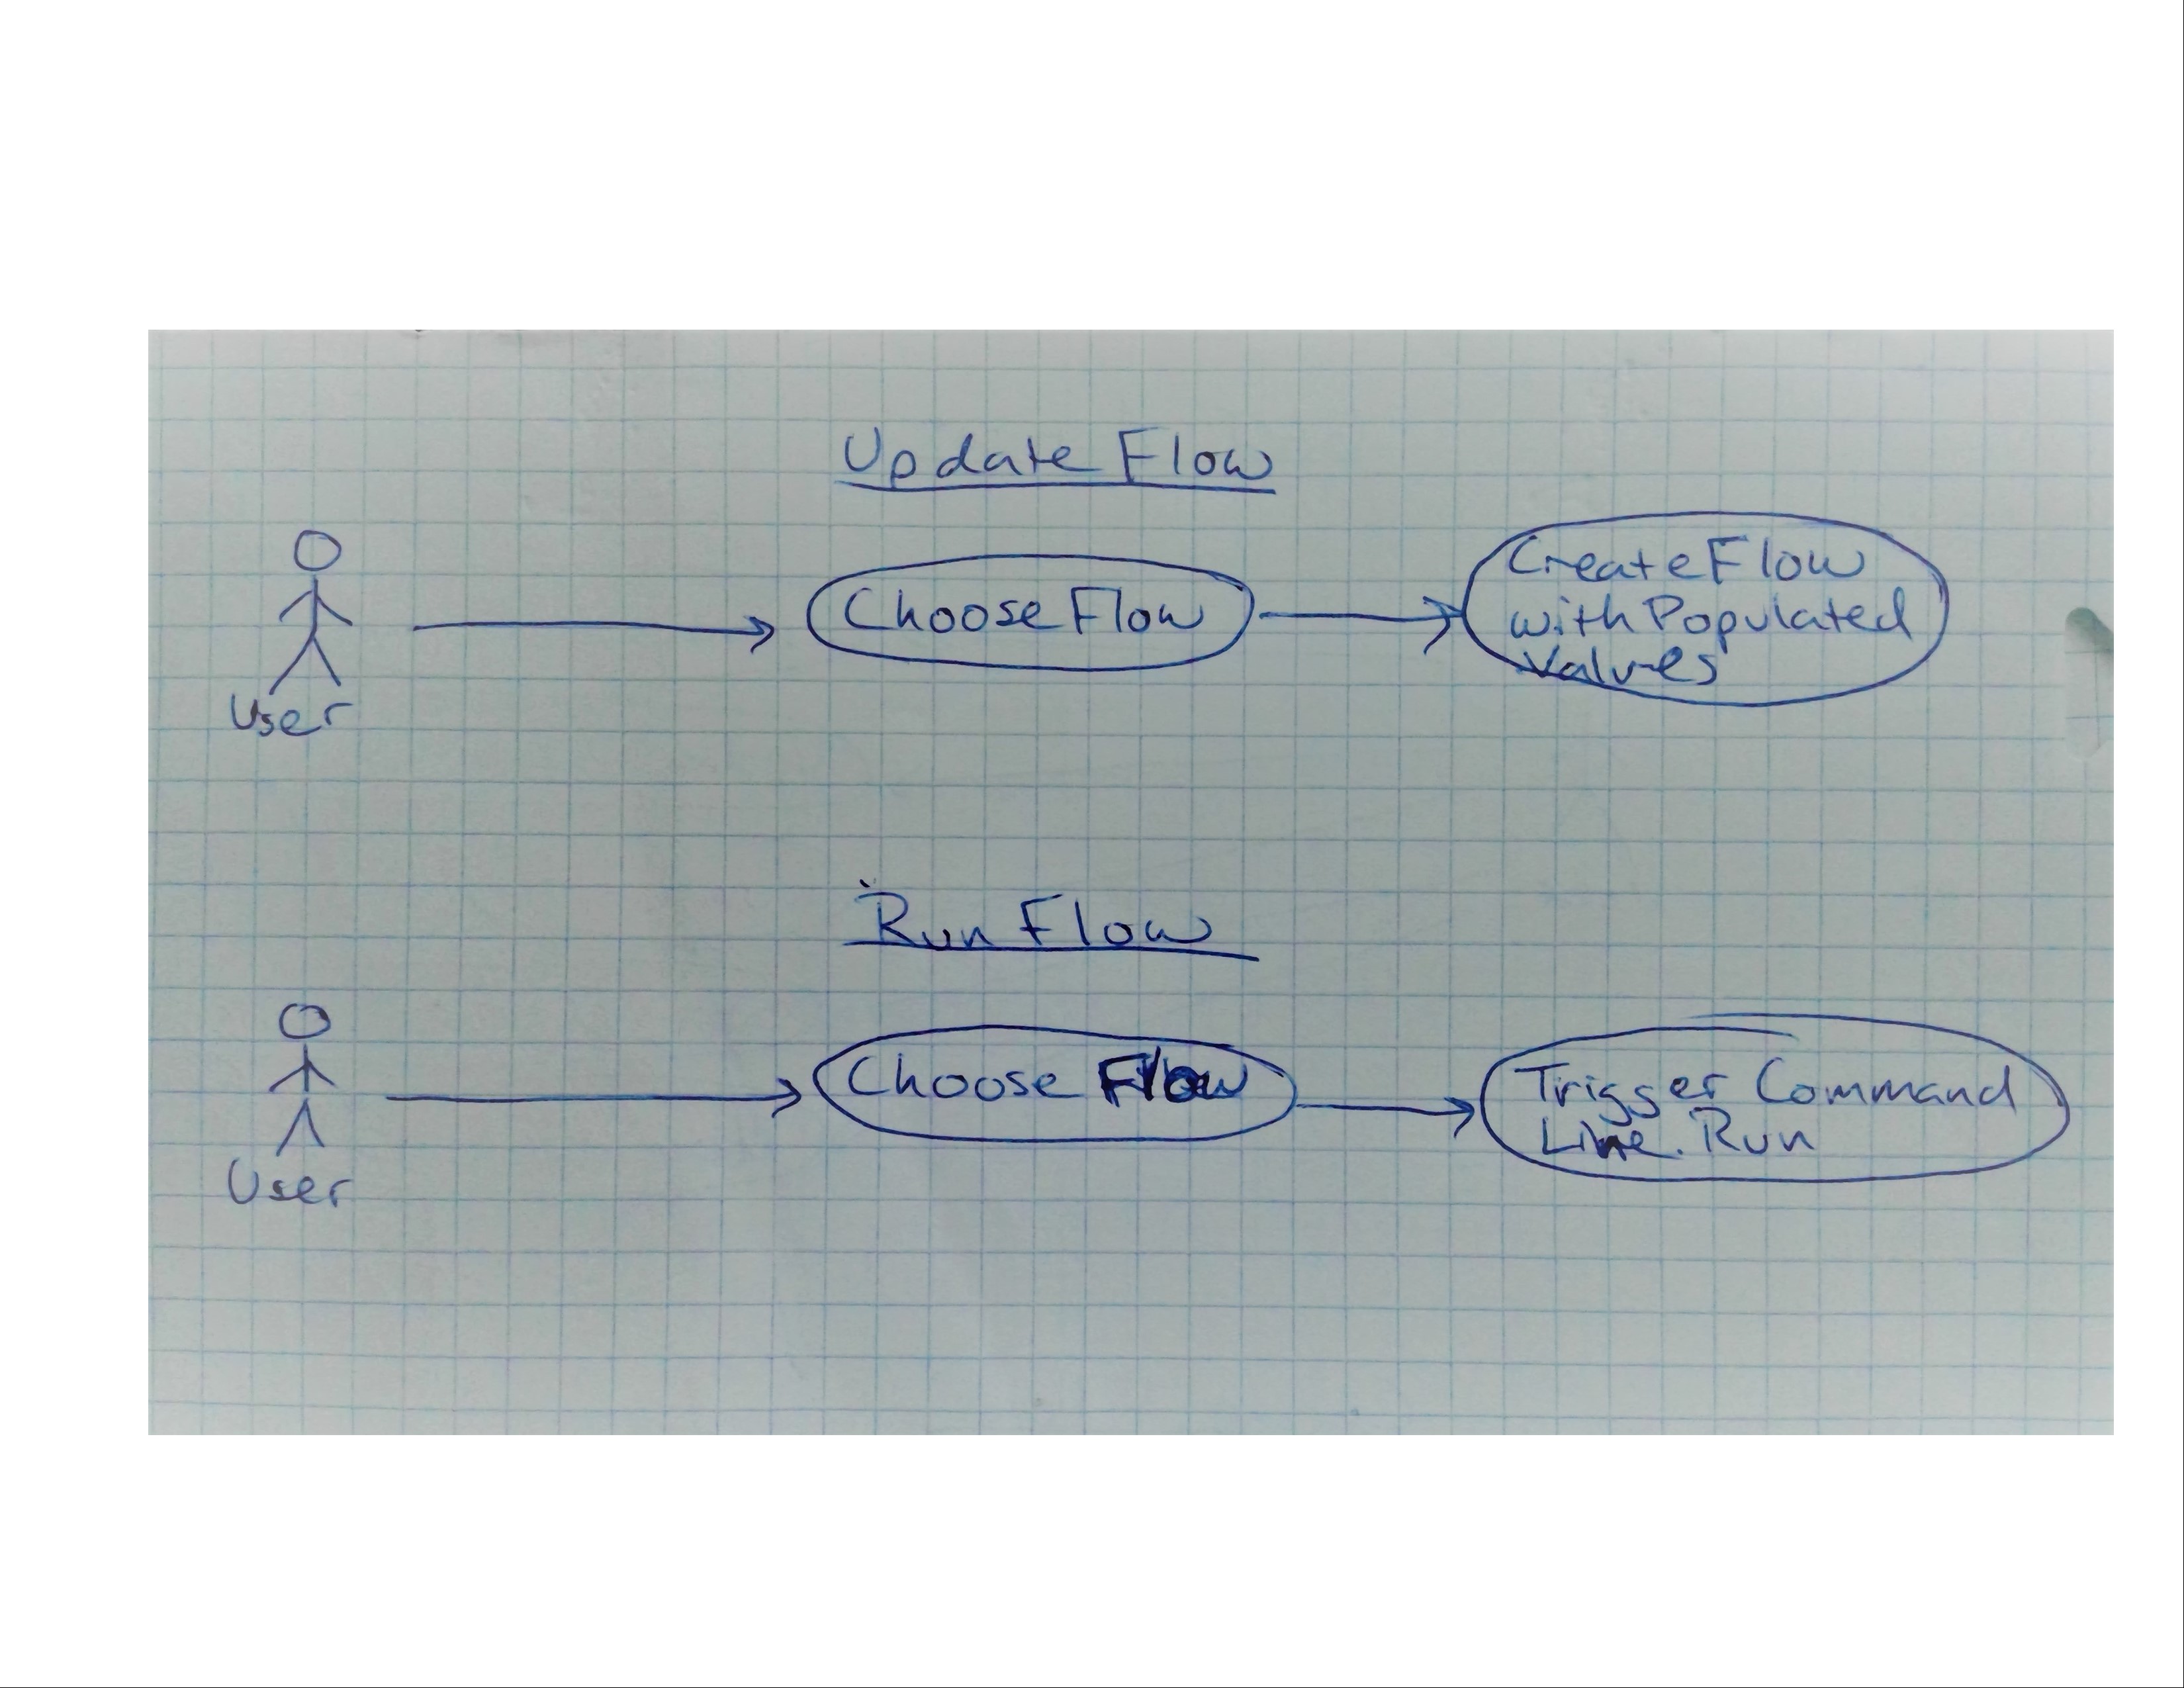 Update Flow
User
Choose Flow
Create Flow
with Populated
Values
Run Flow
User
Choose Flow
Trigger Command
Line Run